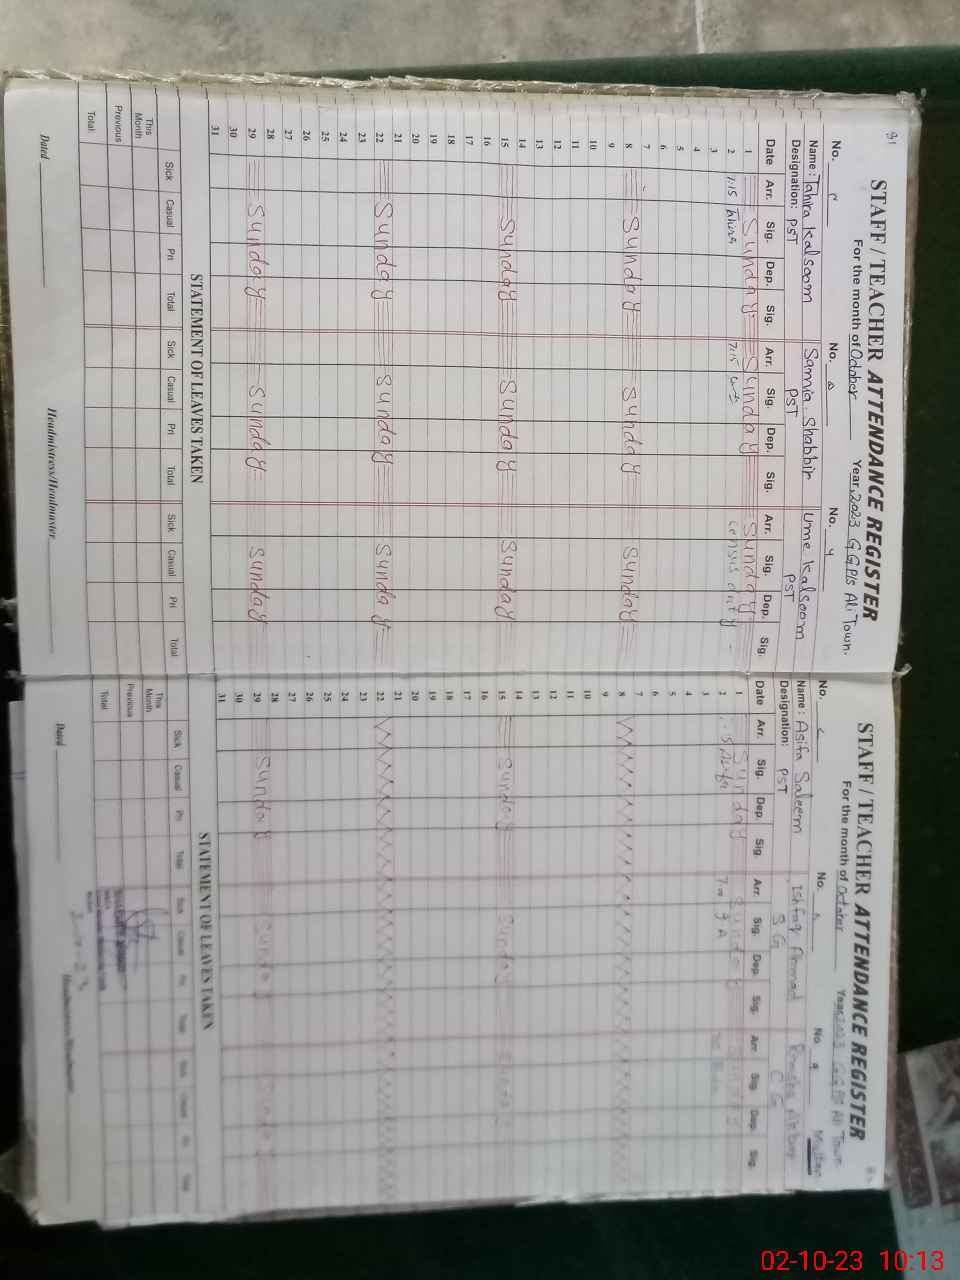 91
STAFF / TEACHER ATTENDANCE REGISTER
For the month of October Year 2023 GGP/s Ali Town.
No. No. No.
Name: Tahira Kalsoom Samia Shabbir Ume Kalsoom
Designation: PST PST PST
Date Arr. Sig. Dep. Sig. Arr. Sig. Dep. Sig. Arr. Sig. Dep. Sig.
1 Sunday Sunday Sunday
2 7:15 7:15 census duty
3
4
5
6
7
8 Sunday Sunday Sunday
9
10
11
12
13
14
15 Sunday Sunday Sunday
16
17
18
19
20
21
22 Sunday Sunday Sunday
23
24
25
26
27
28
29 Sunday Sunday Sunday
30
31
STATEMENT OF LEAVES TAKEN
Sick Casual Pri Total Sick Casual Pri Total Sick Casual Pri Total
This Month
Previous
Total:
Dated Headmistress/Headmaster
STAFF / TEACHER ATTENDANCE REGISTER
For the month of October Year 2023 GGP/S Ali Town
No. No. No.
Name: Asifa Saleem Ishfaq Ahmad
Designation: PST
Date Arr. Sig. Dep. Sig. Arr. Sig. Dep. Sig. Arr. Sig. Dep. Sig.
1 Sunday Sunday
2
3
4
5
6
7
8
9
10
11
12
13
14
15 Sunday Sunday
16
17
18
19
20
21
22
23
24
25
26
27
28
29 Sunday Sunday
30
31
STATEMENT OF LEAVES TAKEN
Sick Casual Pri Total Sick Casual Pri Total
This Month
Previous
Total
Dated
02-10-23 10:13